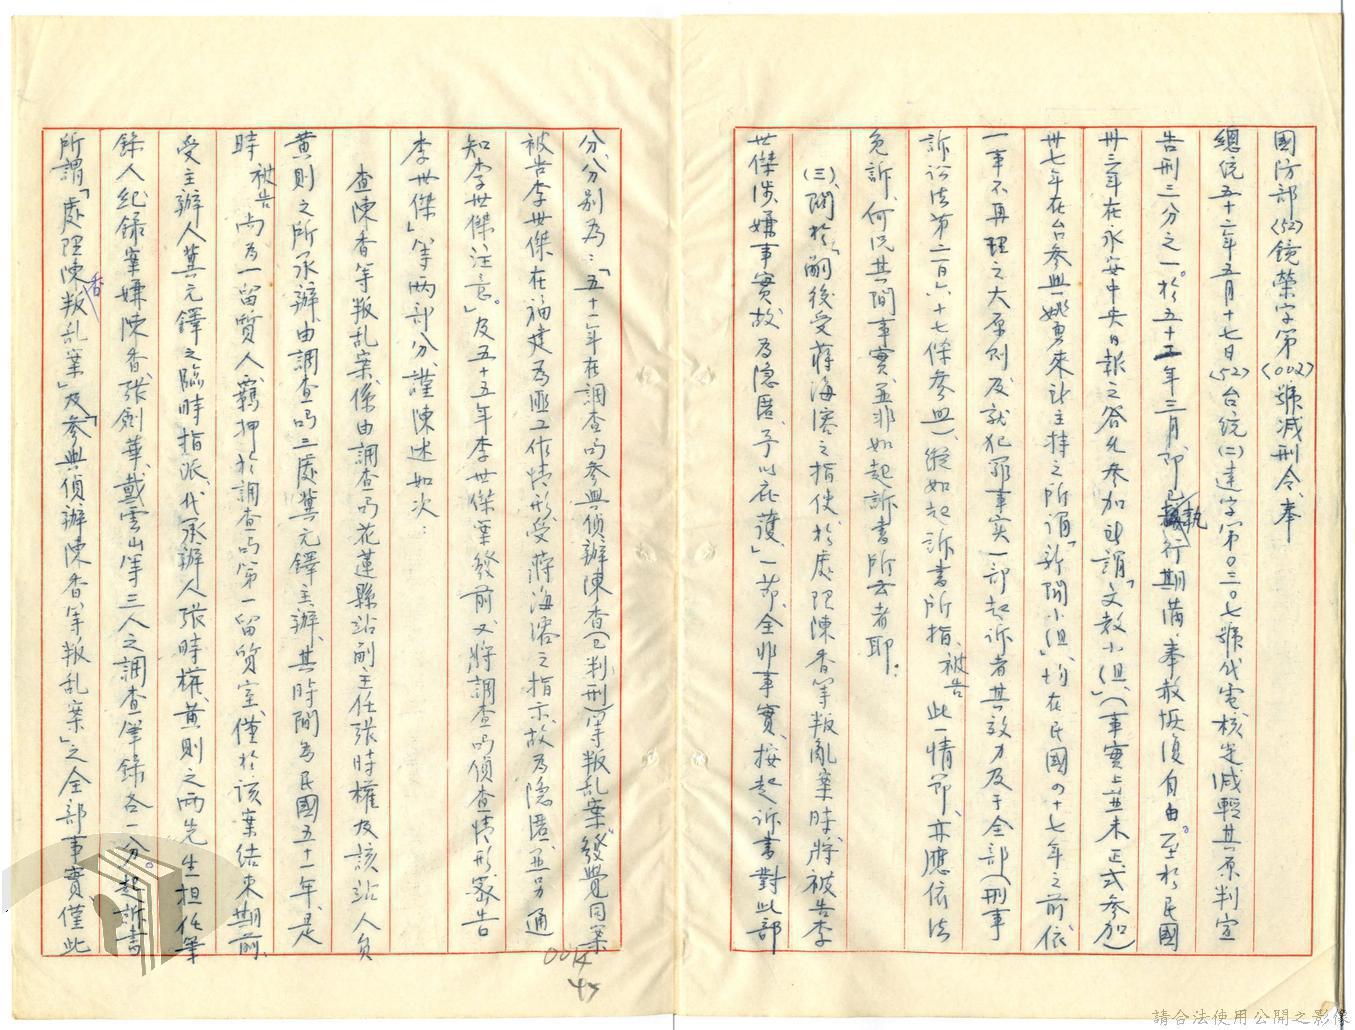 國防部(52)鏡榮字第(002)號減刑令、奉
總統五十二年五月十七日(52)台統(二)達字第0三0七號代電核定減輕其原判宣
告刑三分之一。於五十五年三月、即已執行期滿、奉赦恢復自由。至於民國
卅三年在永安中央日報之答允參加所謂「文教小組」、(事實上並未正式參加)
卅七年在台參與姚勇來所主持之所謂「新聞小組」、均在民國四十七年之前、依
一事不再理之大原則及就犯罪事实一部起诉者其效力及于全部(刑事
訴訟法第二百六十七條參照)、縱如起訴書所指、被告此一情節、亦應依法
免訴、何况其間事實、並非如起訴書所云者耶.
(三)、関於「嗣後受蔣海溶之指使、於處理陳香等叛亂案時、將被告李
世傑涉嫌事實、故為隐匿、予以庇護」一節、全非事實、按起诉書對此部
分、分別為:「五十一年在調查局參與偵辦陳香(已判刑)等叛乱案、發覺同案
被告李世傑在福建為匪工作情形、受蔣海溶之指示、故為隐匿、並另通
知李世傑注意。」及五十五年李世傑案發前、又將調查局偵查情形、密告
李世傑」等两部分、謹陳述如次:
查陳香等叛乱案、係由調查局花蓮縣站副主任張時權及該站人員
黄則之所承辦、由調查局三處冀元鐸主辦、其時間為民國五十一年、是
時被告尚為一留質人、羈押於調查局第一留質室、僅於該案結束期前、
受主辦人冀元鐸之臨時指派、代承辦人張時權、黄則之两先生担任筆
錄人、紀錄案嫌陳香、張劍華、戴雲山等三人之調查筆錄各一分。起訴書
所謂「處理陳香叛乱案」及「參與偵辦陳香等叛乱案」之全部事實僅此
0014
45
請合法使用公開之影像